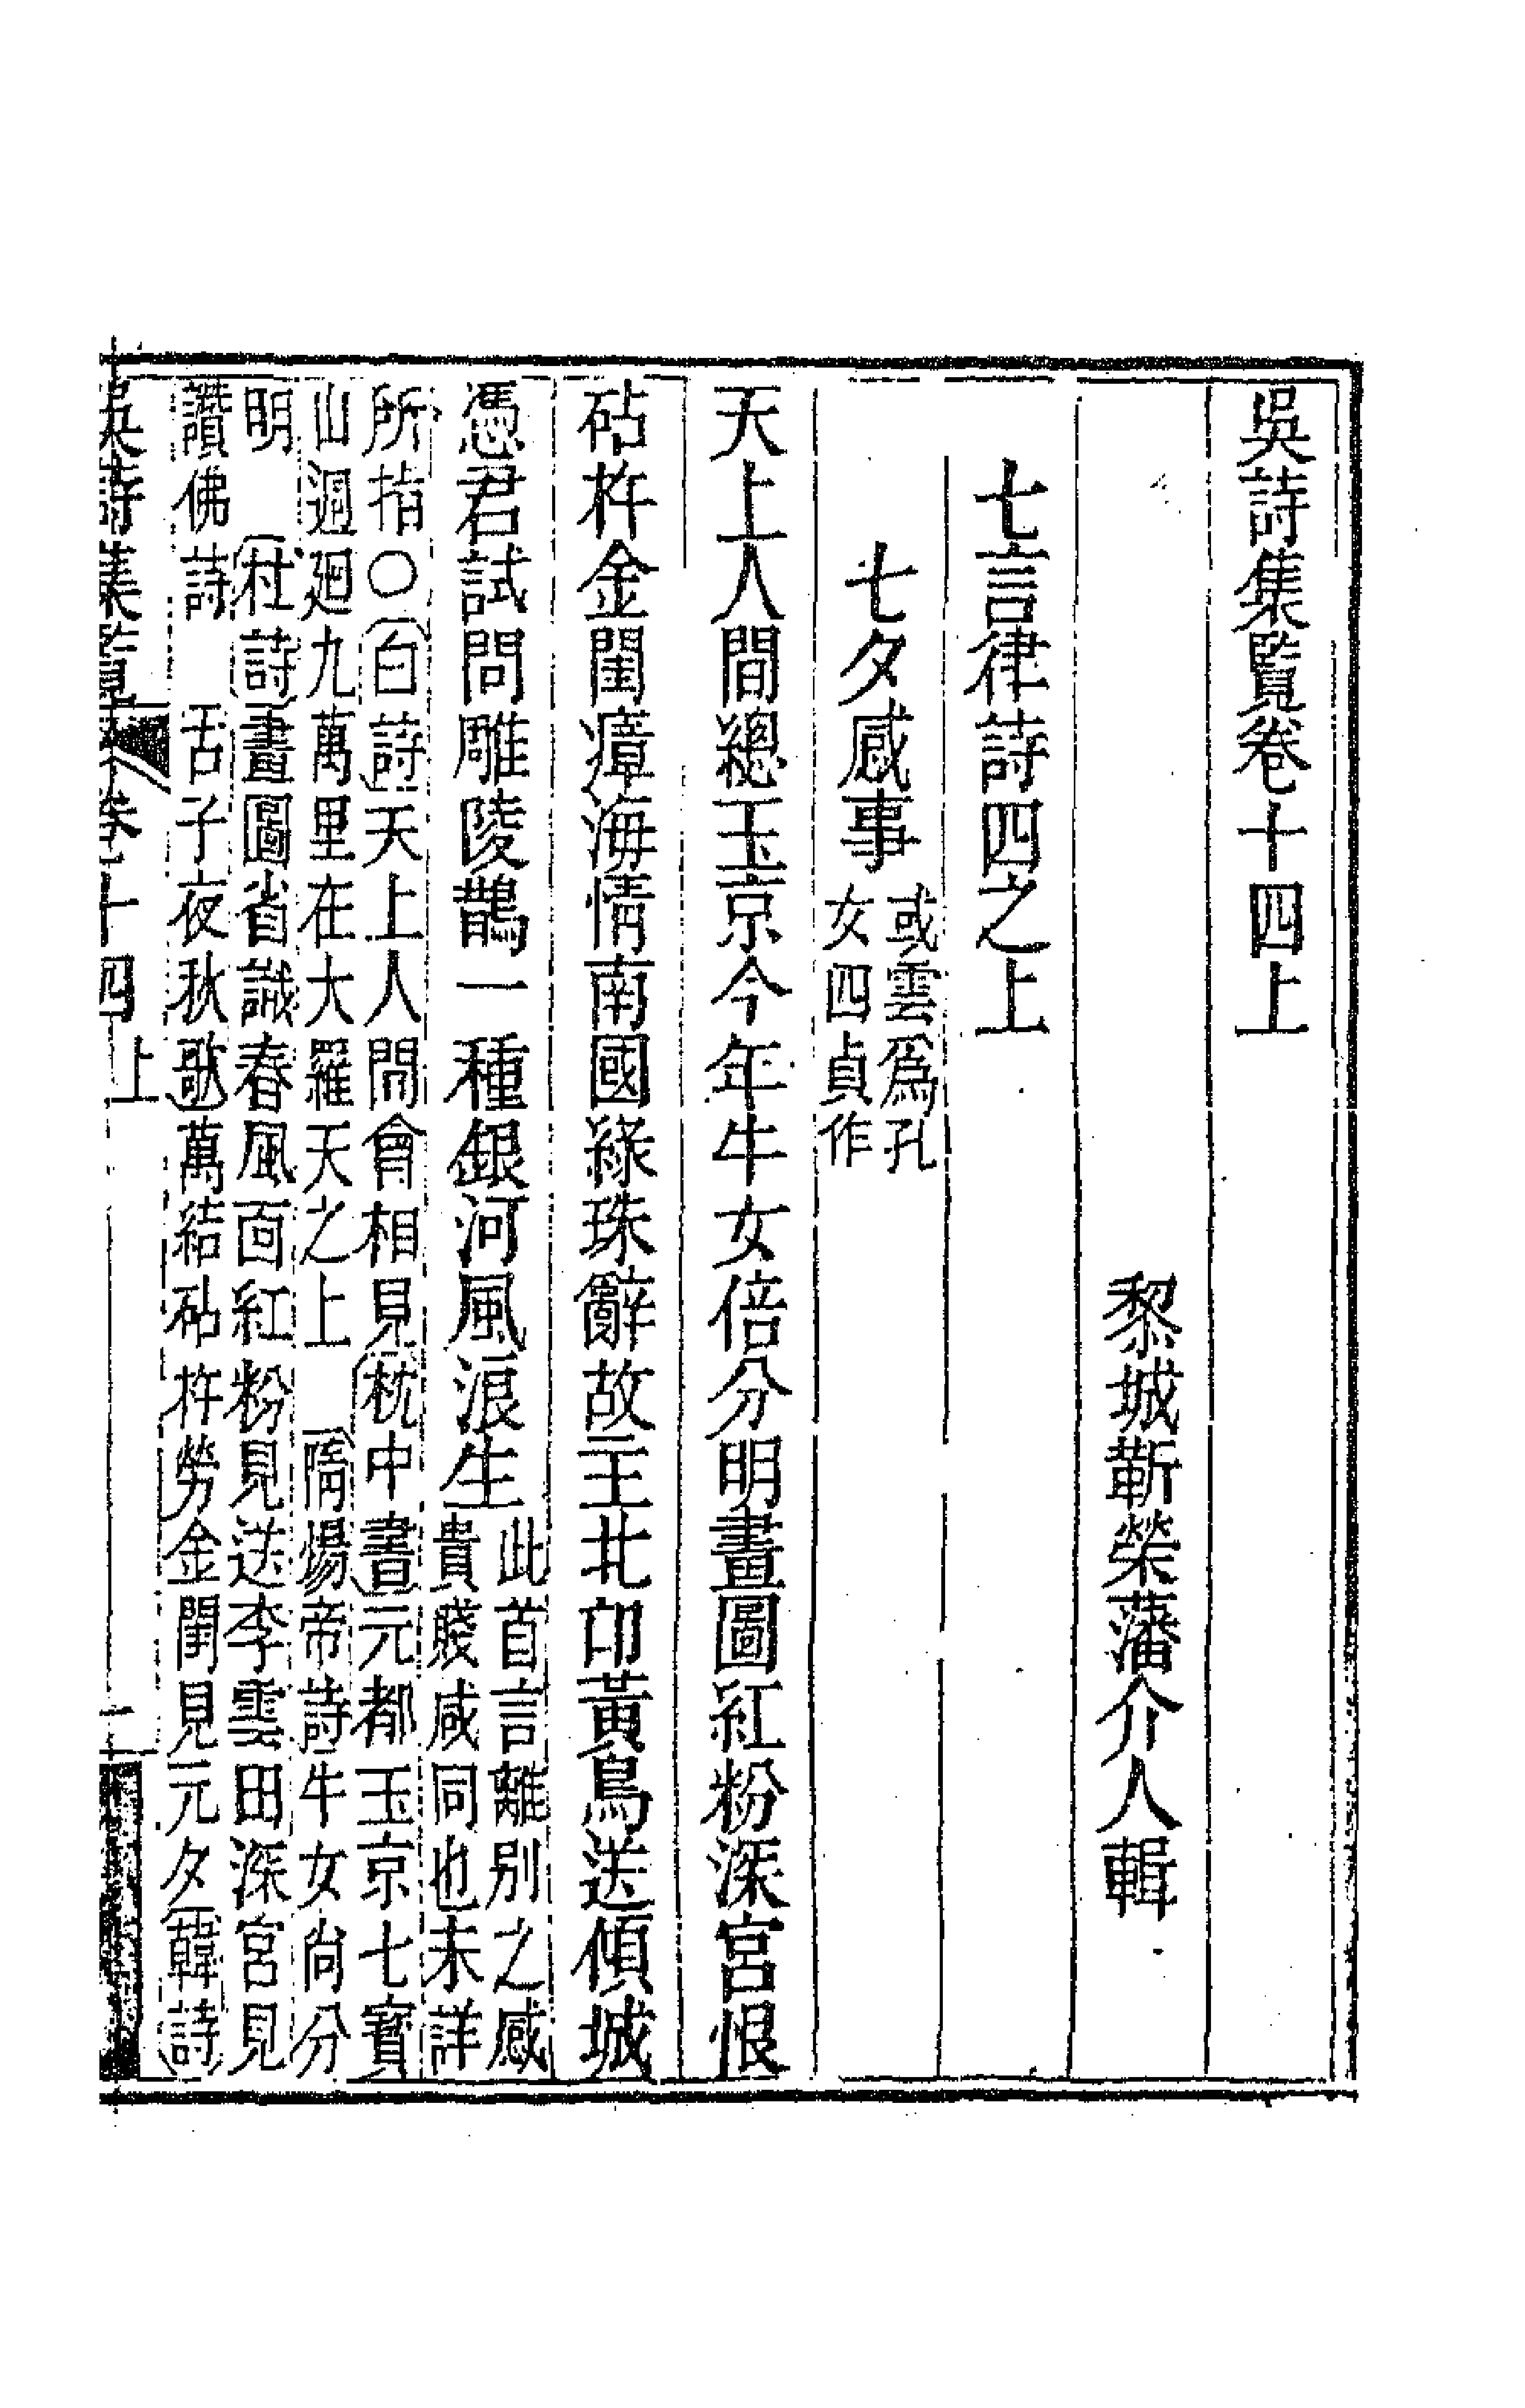 吳詩集覽卷十四上
黎城靳榮藩介人輯
七言律詩四之上
七夕感事
或雲爲孔
女四貞作
天上人間總玉京今年牛女倍分明畫圖紅粉深宮恨
砧杵金閨瘴海情南國綠珠辭故主北邙黃鳥送傾城
憑君試問雕陵鵲一種銀河風浪生
此首言離別之感
貴賤咸同也未詳
所指○白詩天上人間會相見枕中書元都玉京七寶
山週廻九萬里在大羅天之上 隋煬帝詩牛女尚分
明 杜詩畫圖省識春風面紅粉見送李雲田深宮見
讚佛詩 古子夜秋歌萬結砧杵勞金閨見元夕韓詩
吳詩集覽 卷十四上 一